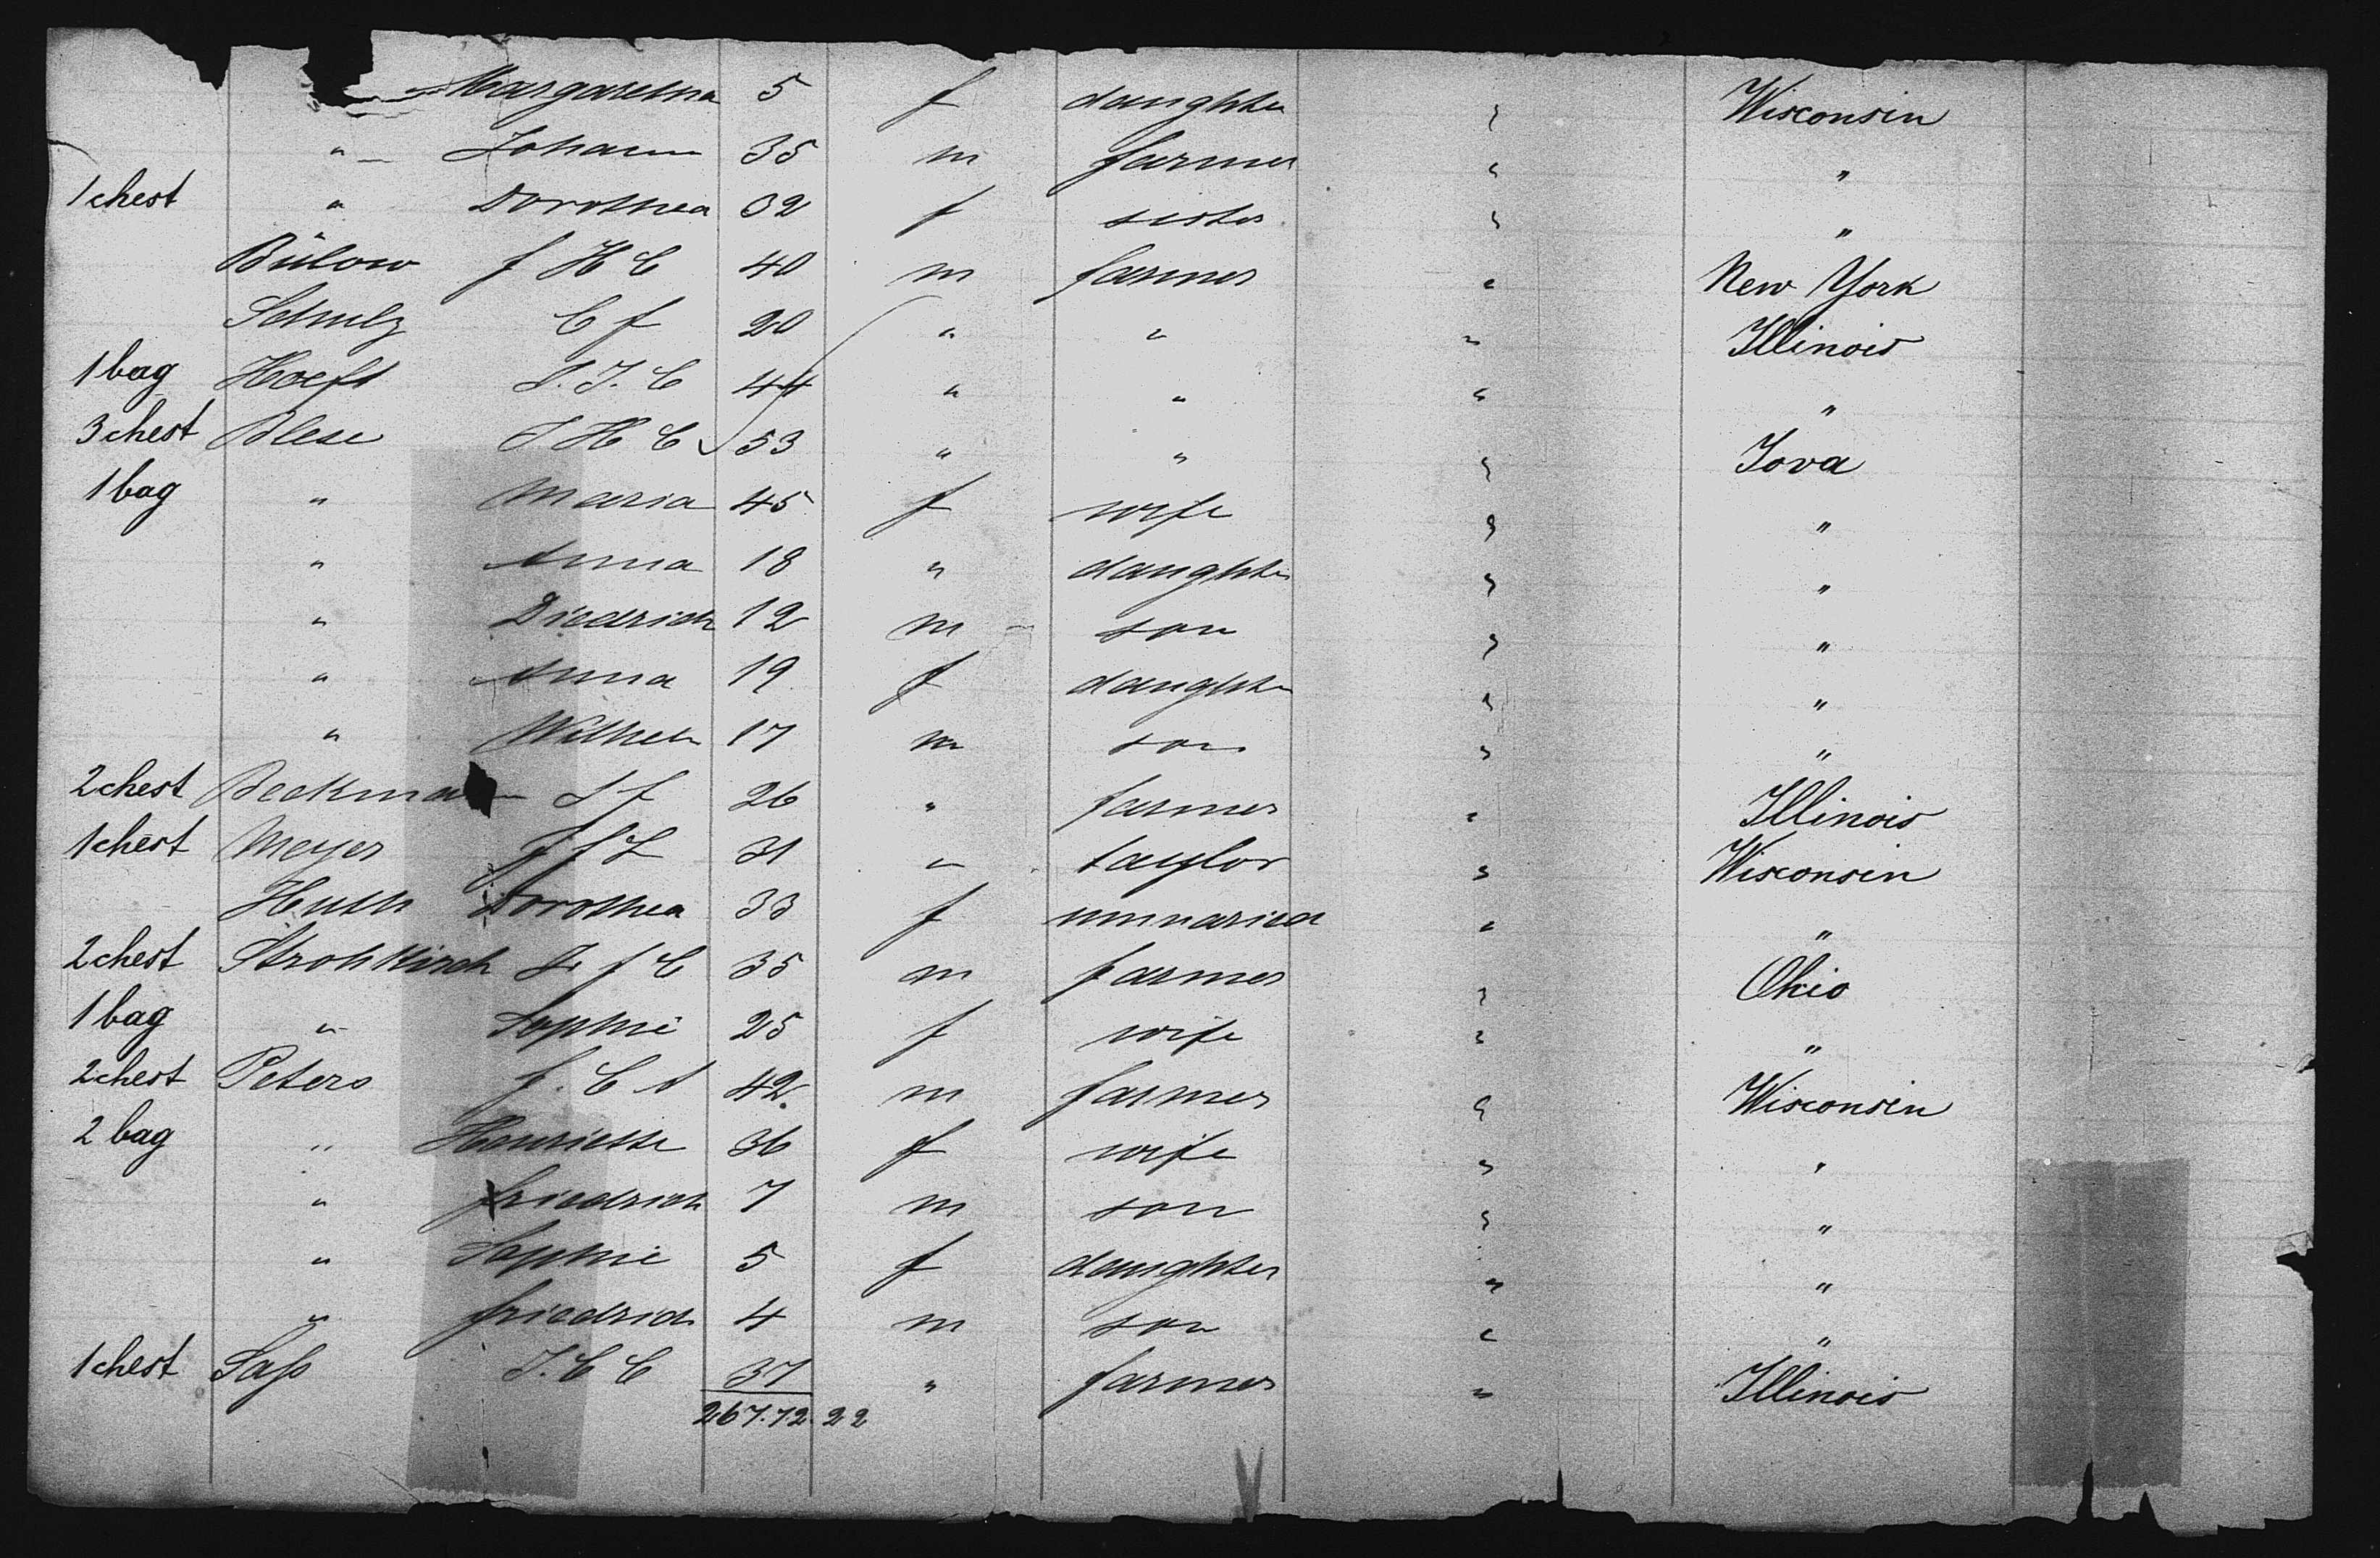 Margaretha 5 f daughter " Wisconsin
" Johann 35 m farmer " "
1 chest " Dorothea 32 f sister " "
Bülow f H C 40 m farmer " New York
Schulz C f 20 " " " Illinois
1 bag Hoeft J. C 44 " " " "
3 chest Blese J H C 53 " " " Iova
1 bag " Maria 45 f wife " "
" Anna 18 " daughter " "
" Diedrich 12 m son " "
" Anna 19 f daughter " "
" Wilhelm 17 m son " "
2 chest Beckmann J f 26 " farmer " Illinois
1 chest Meyer f f L 31 " taylor " Wisconsin
Huth Dorothea 33 f unmaried " "
2 chest Strohkirch J f C 35 m farmer " Ohio
1 bag " Sophie 25 f wife " "
2 chest Peters f. C A 42 m farmer " Wisconsin
2 bag " Henriette 36 f wife " "
" friedrich 7 m son " "
" Sophie 5 f daughter " "
" friedrich 4 m son " "
1 chest Saß J. C C 37 " farmer " Illinois
267.72.22